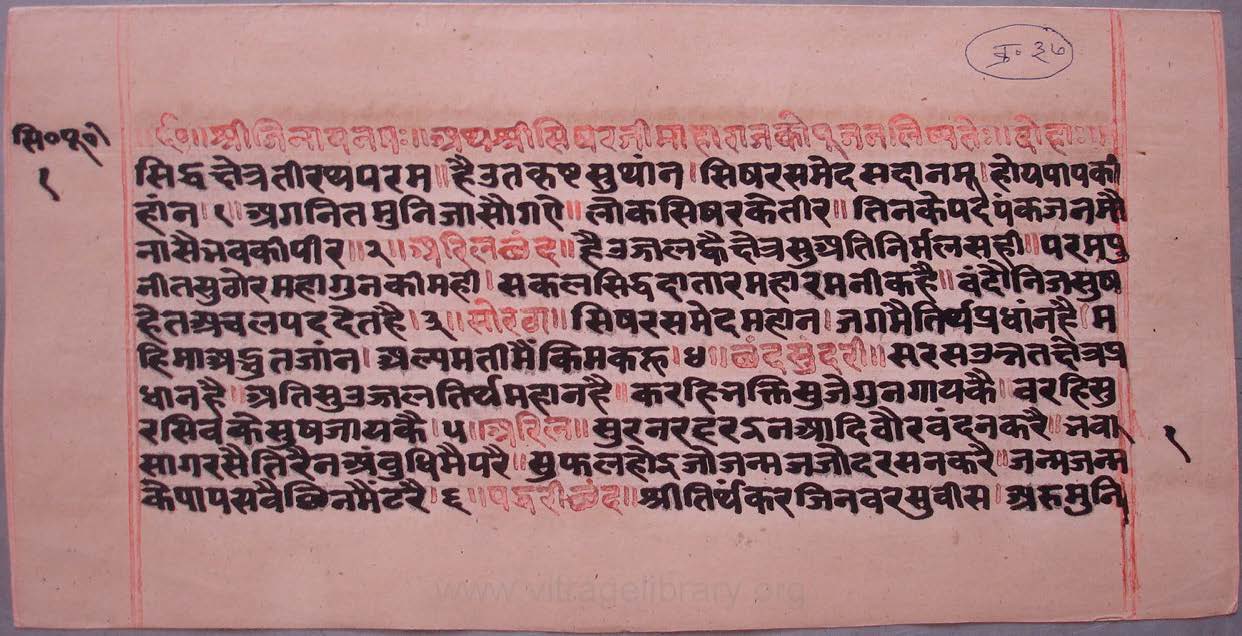 क्र॰ ३७
सि॰पू॰जी
१
॥र्द॰॥श्रीजिनायनमः॥अथश्रीसिषरजीमाहाराजकोपूजनलिष्यतेः॥दोहाः॥
सिद्धक्षेत्रतीरथपरम॥हैउतकष्टसुथांन।सिषरसमेदसदानमू।होयपापकी
हांन।१।अगनितमुनिजासौगऐ॥लोकसिषरकेतीर॥तिनकेपदपंकजनमौ
नासैभवकीपीर॥२॥अरिलछंद॥हैउजालकैक्षेत्रसुअतिनिर्मलसही॥परमपु
नीतसुठोरमहागुनकीमही।सकलसिद्धदातारमहारमनीकहै॥वंदौनिजसुष
हेतअचलपददेतहै।३॥सोरठा॥सिषरसमेदमहान।जगमैतिर्थप्रधांनहै।म
हिमाअद्भुतजांन।अल्पमतीमैंकिमकहू।४॥छंदसुंदरी॥सरसउन्नतक्षेत्रप्र
धानहै॥अतिसुउजलतिर्थमहानहै॥करहिभक्तिसुजेगुनगायकै॥वरहिसु
रसिवकेसुषजायकै।५॥अरिल॥सुरनरहरऽनआदिवौरवंदनकरै॥भवा
सागरसैतिरैनअंबुधिमैपरै॥सुफलहोऽजोजन्मजजौदरसनकरै॥जन्मजन्म
केपापसवैछिनमैंटरै।६॥पद्धरीछंद॥श्रीतिर्थंकरजिनवरसुवीस।अरूमुनि
१
www.vitragelibrary.org